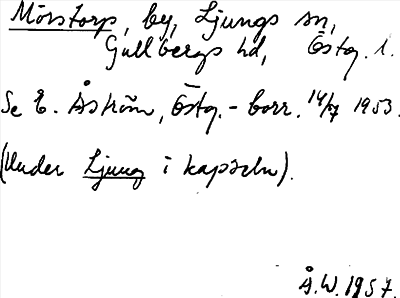 Mörstorp, by, Ljungs sn,
Gullbergs hd, Östg. l.
Se E. Åström, Östg.-borr. 14/7 1953.
(Under Ljung i kapseln).
Å.W. 1957.